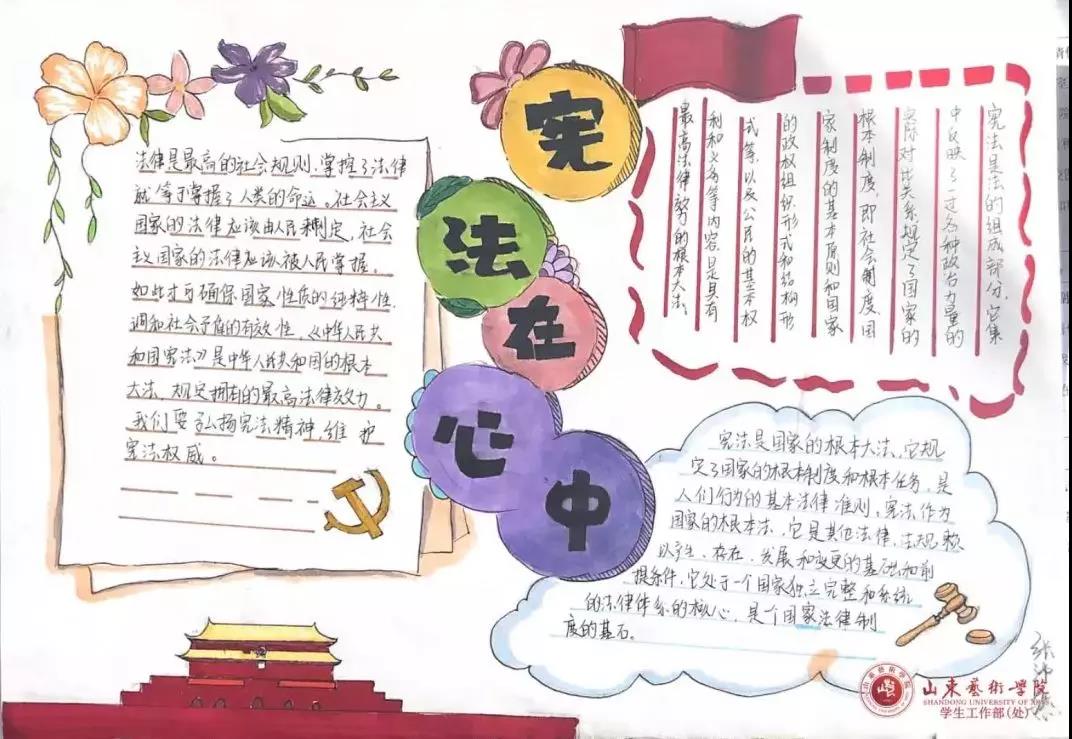 宪
法
在
心
中
法律是最高的社会规则,掌握了法律
就等于掌握了人类的命运。社会主义
国家的法律应该由人民来制定,社会
主义国家的法律应该被人民掌握。
如此才可确保国家性质的纯粹性,
调和社会矛盾的有效性,《中华人民共
和国宪法》是中华人民共和国的根本
大法、规定拥有的最高法律效力。
我们要弘扬宪法精神,维护
宪法权威。
宪法是法的组成部分,它集
中反映了一过各种政治力量的
实际对比关系,规定了国家的
根本制度,即社会制度、国
家制度的基本原则和国家
的政权组织形式和结构形
式等,以及公民的基本权
利和义务等内容,是具有
最高法律效力的根本大法。
宪法是国家的根本大法,它规
定了国家的根本制度和根本任务,是
人们行为的基本法律准则,宪法作为
国家的根本法,它是其他法律、法规赖
以产生、存在、发展和变更的基础和前
提条件,它处于一个国家独立完整和系统
的法律体系的核心,是个国家法律制
度的基石。
山东艺术学院
SHANDONG UNIVERSITY OF ARTS
学生工作部(处)